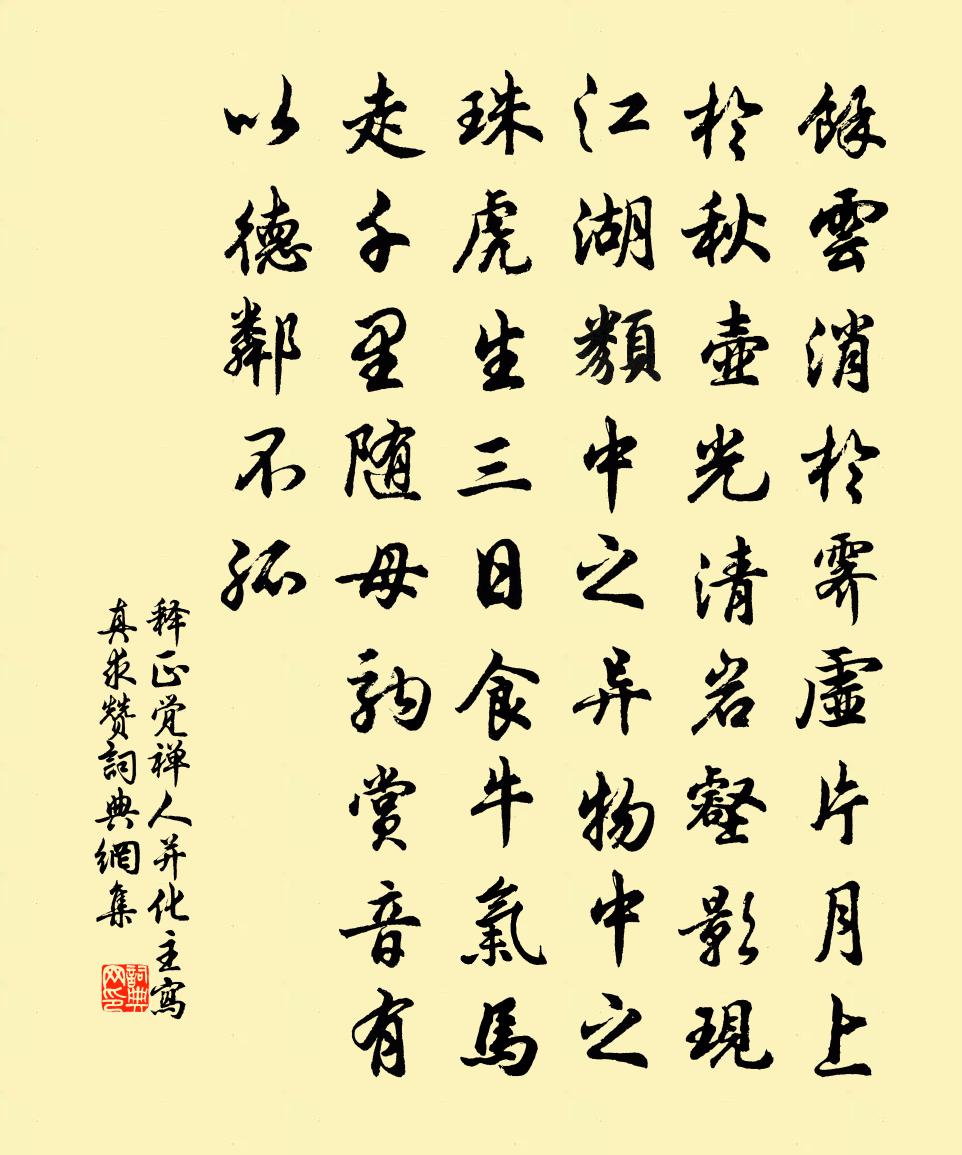 餘雲消於霽虛片月上
於秋壺光清岩壑影現
江湖類中之异物中之
珠虎生三日食牛氣馬
走千里随母駒賞音有
以德鄰不孤
释正觉禅人并化主寫
真求赞詞典網集
詞典网印